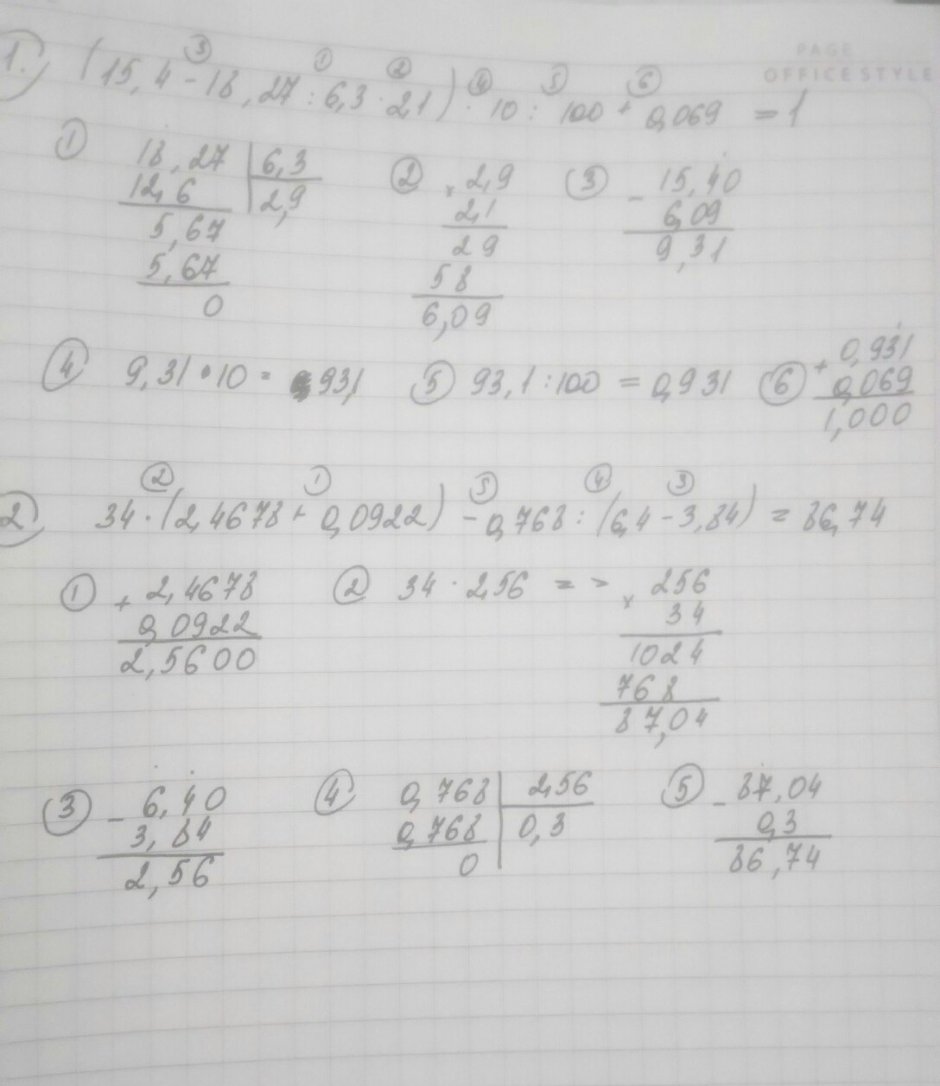 PAGE
OFFICE STYLE
③ ① ② ④ ⑤ ⑥
1.) (15,4 - 18,27 : 6,3 · 2,1) · 10 : 100 + 0,069 = 1
① 18,27 | 6,3 ② × 2,9 ③ - 15,40
12,6 | 2,9 2,1 6,09
5,67 29 9,31
5,67 58
0 6,09
④ 9,31 · 10 = 93,1 ⑤ 93,1 : 100 = 0,931 ⑥ + 0,931
0,069
1,000
② ① ⑤ ④ ③
2) 34 · (2,4678 + 0,0922) - 0,768 : (6,4 - 3,84) = 86,74
① + 2,4678 ② 34 · 2,56 = > × 256
0,0922 34
2,5600 1024
768
87,04
③ - 6,40 ④ 0,768 | 2,56 ⑤ - 87,04
3,84 0,768 | 0,3 0,3
2,56 0 86,74